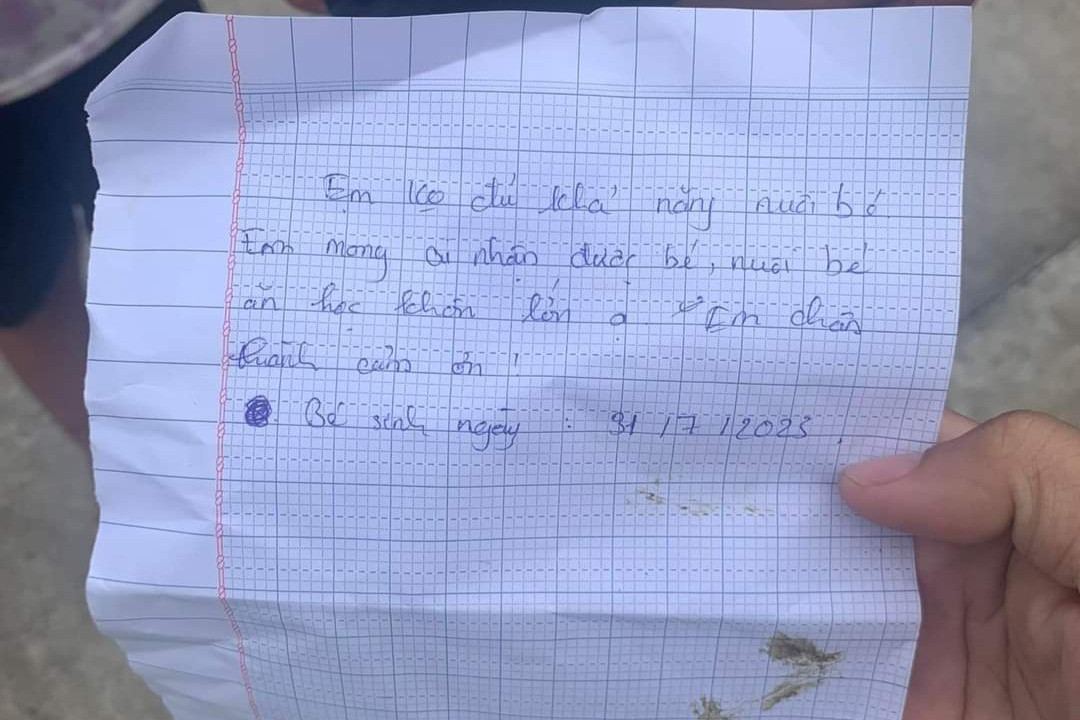 Em ko đủ khả năng nuôi bé
Em mong ai nhận được bé, nuôi bé
ăn học khôn lớn ạ. Em chân
thành cảm ơn!
Bé sinh ngày : 31/7/2023.